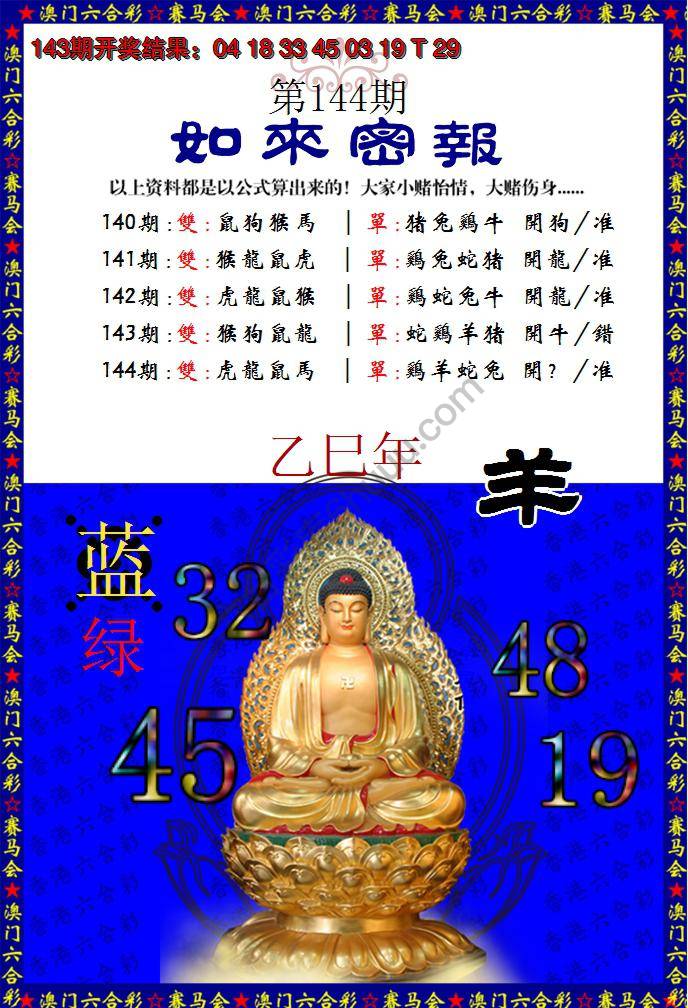 ★澳门六合彩☆赛马会★澳门六合彩☆赛马会★澳门六合彩☆赛马会★
143期开奖结果：04 18 33 45 03 19 T 29
第144期
如來密報
以上资料都是以公式算出来的！大家小赌怡情，大赌伤身......
140期：雙：鼠狗猴馬 | 單：猪兔鷄牛 開狗/准
141期：雙：猴龍鼠虎 | 單：鷄兔蛇猪 開龍/准
142期：雙：虎龍鼠猴 | 單：鷄蛇兔牛 開龍/准
143期：雙：猴狗鼠龍 | 單：蛇鷄羊猪 開牛/錯
144期：雙：虎龍鼠馬 | 單：鷄羊蛇兔 開？/准
乙巳年
羊
蓝
绿
32
48
45
19
香港六合彩
★澳门六合彩☆赛马会★澳门六合彩☆赛马会★澳门六合彩☆赛马会★